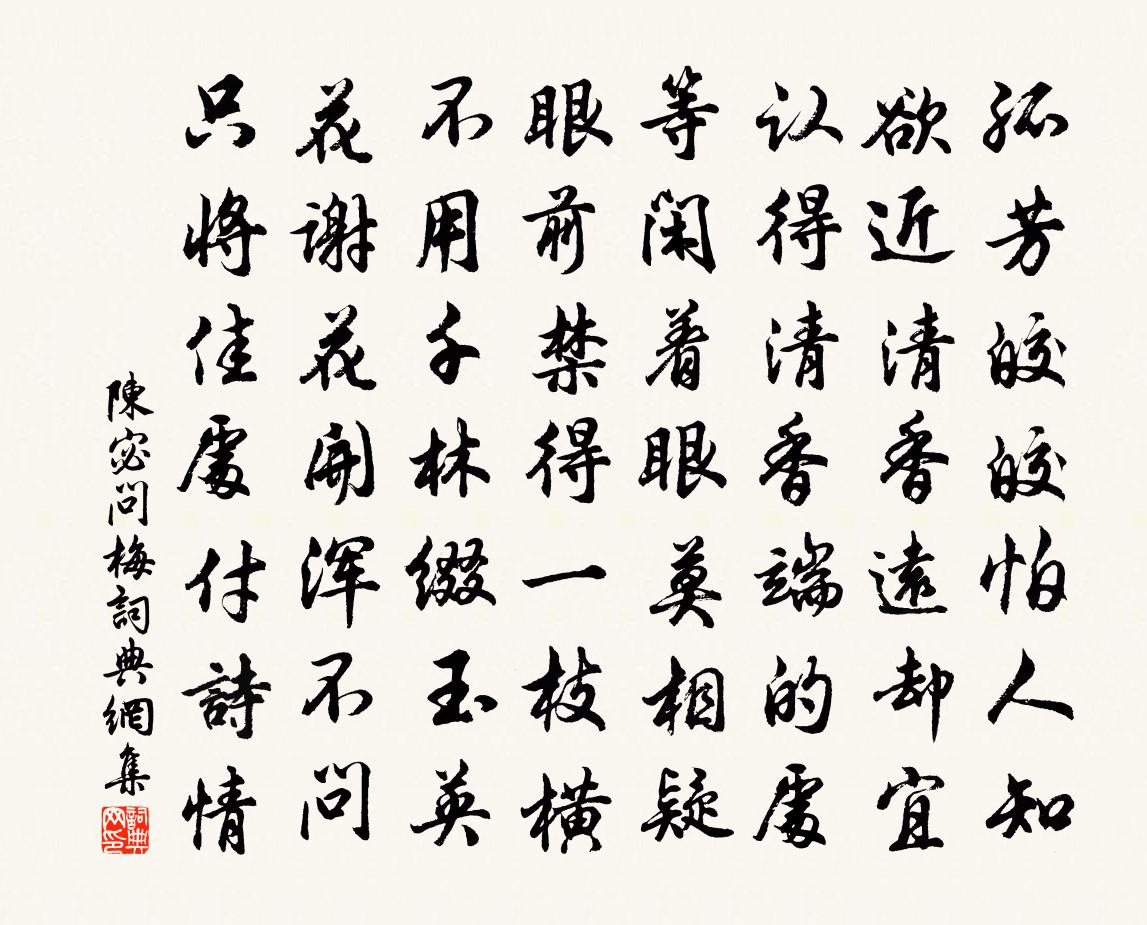 孤芳皎皎怕人知
欲近清香遠却宜
认得清香端的處
等閑着眼莫相疑
眼前禁得一枝橫
不用千林綴玉英
花謝花開浑不問
只將佳處付詩情
陳宓問梅詞典網集
詞典网印